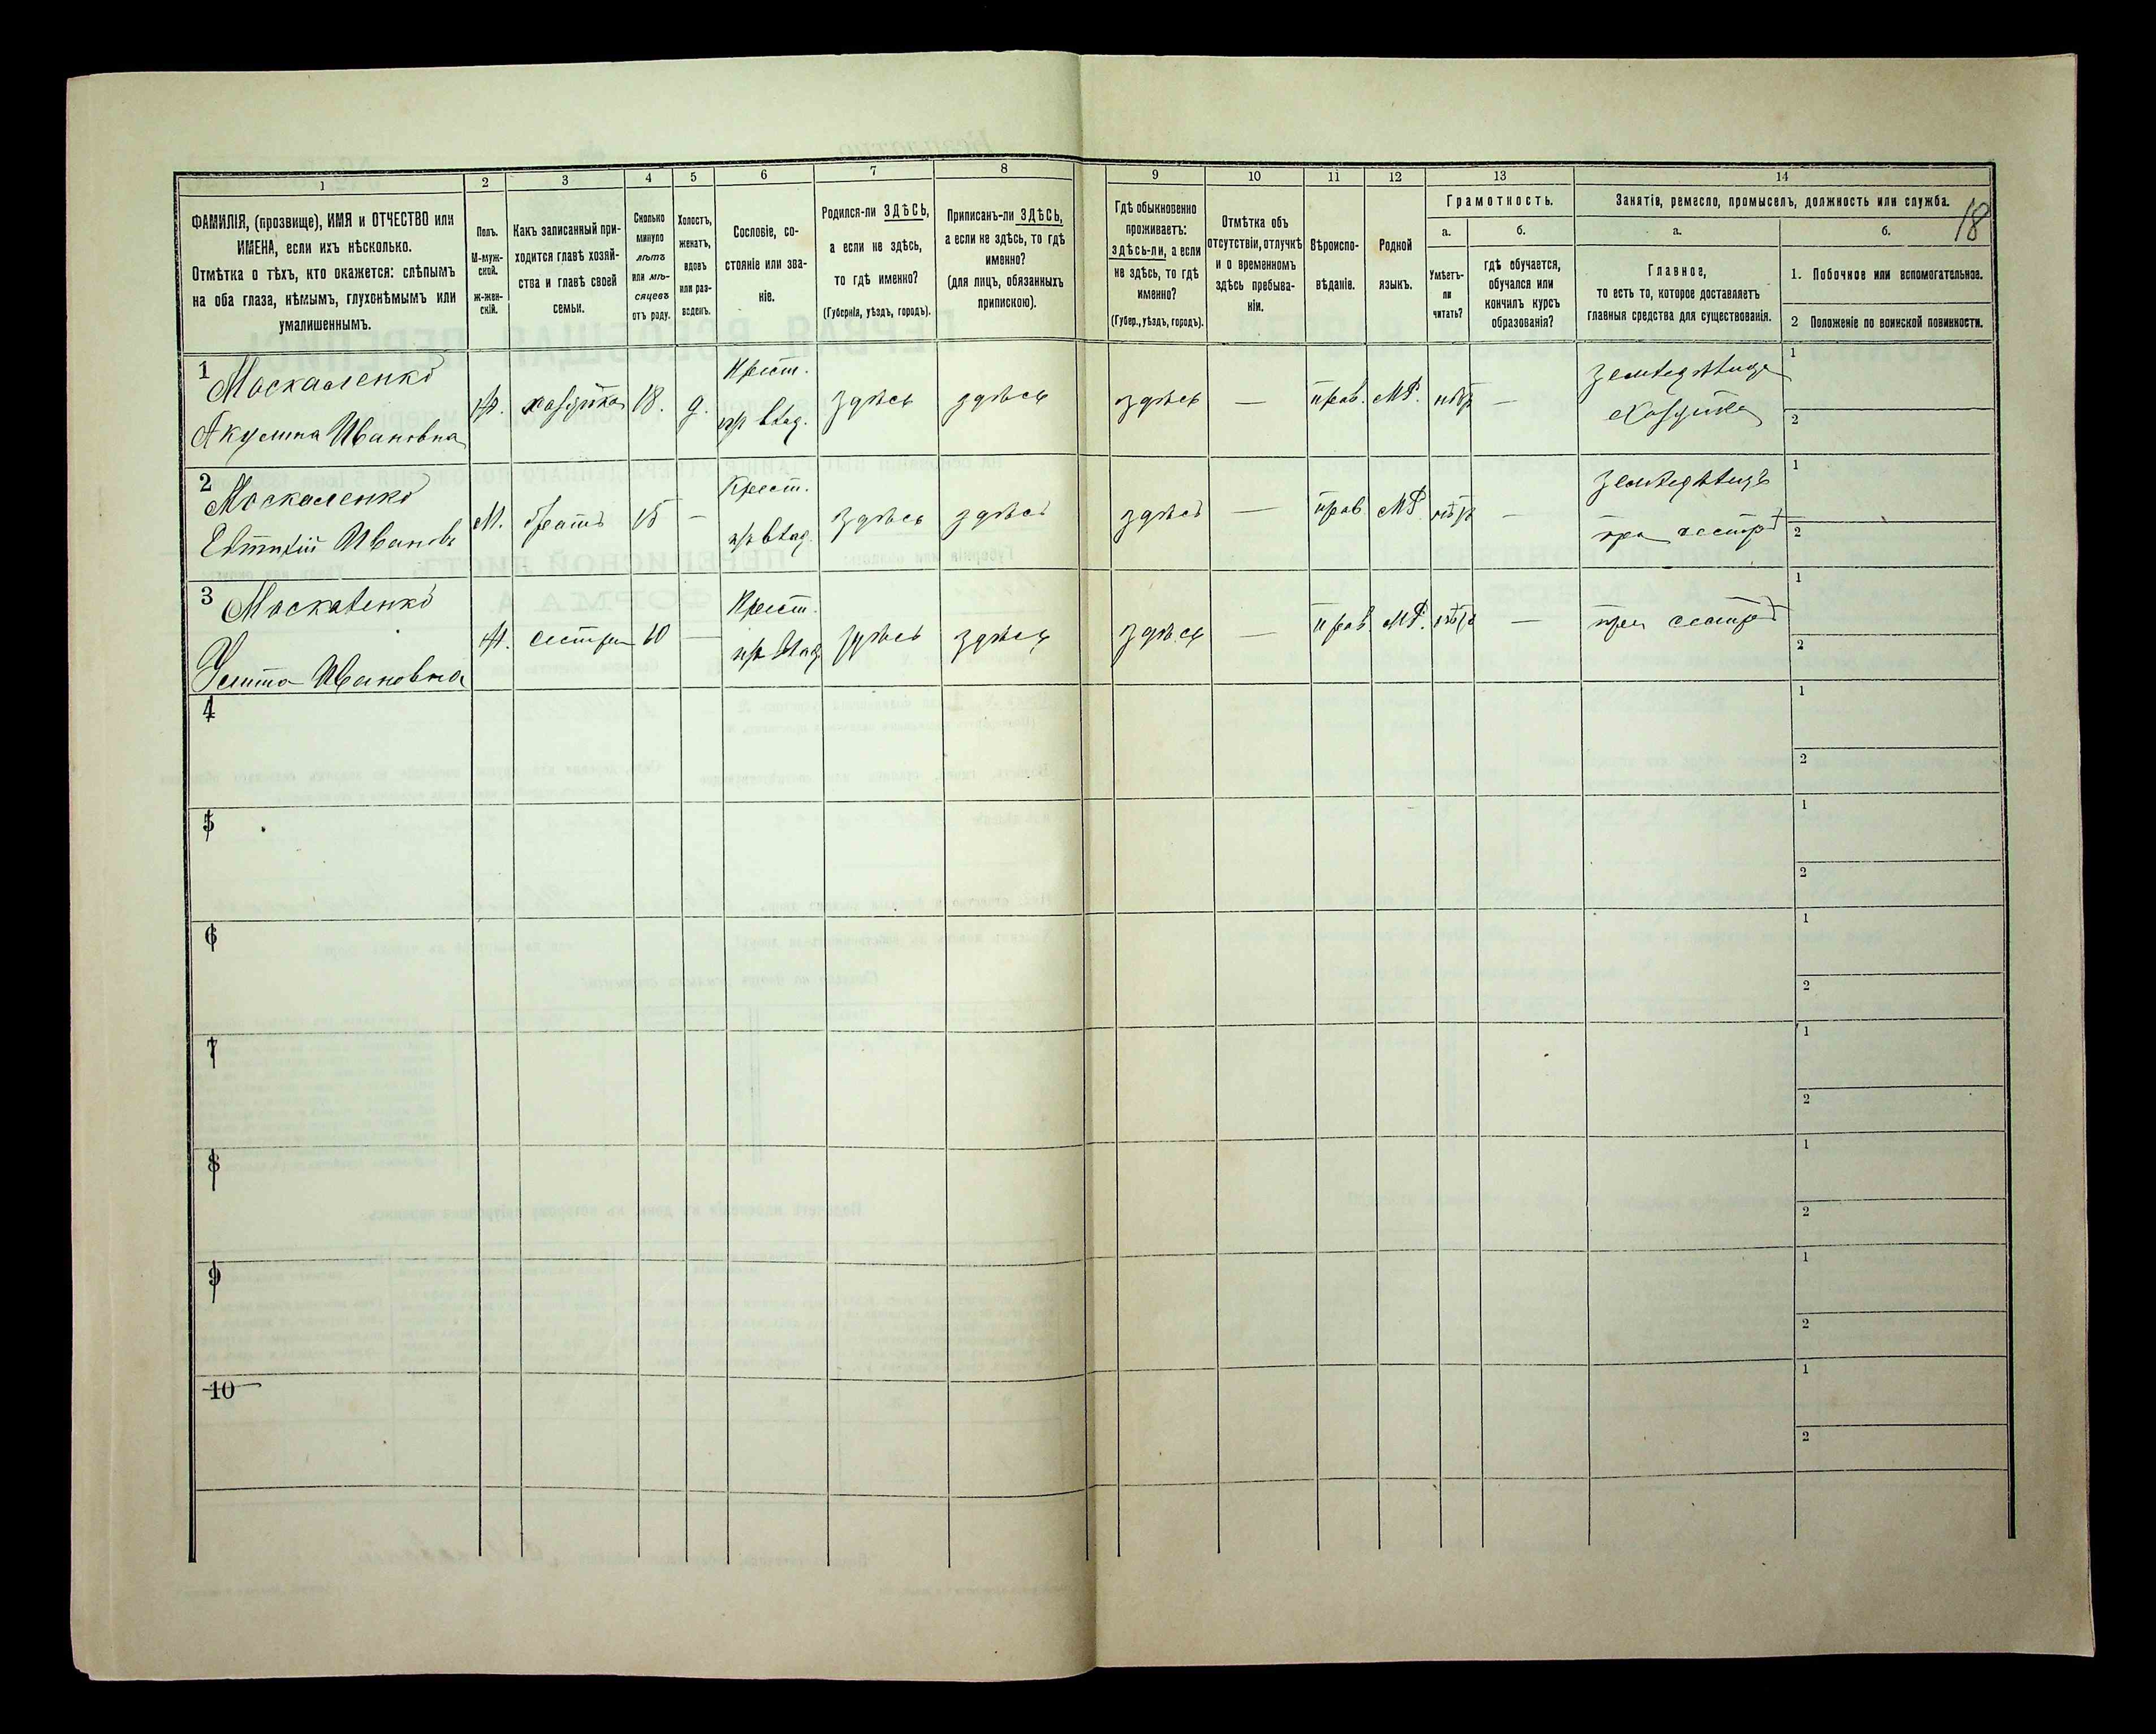 18
1
2
3
4
5
6
7
8
9
10
11
12
13
14
ФАМИЛІЯ, (прозвище), ИМЯ и ОТЧЕСТВО или
ИМЕНА, если ихъ нѣсколько.
Отмѣтка о тѣхъ, кто окажется: слѣпымъ
на оба глаза, нѣмымъ, глухонѣмымъ или
умалишеннымъ.
Полъ.
М-муж-
ской.
ж-жен-
скій.
Какъ записанный при-
ходится главѣ хозяй-
ства и главѣ своей
семьи.
Сколько
минуло
лѣтъ
или мѣ-
сяцевъ
отъ роду.
Холостъ,
женатъ,
вдовъ
или раз-
веденъ.
Сословіе, со-
стояніе или зва-
ніе.
Родился-ли ЗДѢСЬ,
а если не здѣсь,
то гдѣ именно?
(Губернія, уѣздъ, городъ).
Приписанъ-ли ЗДѢСЬ,
а если не здѣсь, то гдѣ
именно?
(для лицъ, обязанныхъ
припискою).
Гдѣ обыкновенно
проживаетъ:
здѣсь-ли, а если
не здѣсь, то гдѣ
именно?
(Губер., уѣздъ, городъ).
Отмѣтка объ
отсутствіи, отлучкѣ
и о временномъ
здѣсь пребыва-
ніи.
Вѣроиспо-
вѣданіе.
Родной
языкъ.
Грамотность.
а.
Умѣетъ-
ли
читать?
б.
гдѣ обучается,
обучался или
кончилъ курсъ
образованія?
Занятіе, ремесло, промыселъ, должность или служба.
а.
Главное,
то есть то, которое доставляетъ
главныя средства для существованія.
б.
1. Побочное или вспомогательное.
2 Положеніе по воинской повинности.
1 Москаленко
Акулина Ивановна
ж. хозяйка 18. д.
Крест.
из влад.
здѣсь здѣсь здѣсь — прав. МР. нѣтъ —
земледѣлица
хозяйка
1
2
2 Москаленко
Евтихій Ивановъ
М. братъ 15 —
Крест.
из влад.
здѣсь здѣсь здѣсь — прав МР нѣтъ —
земледѣлецъ
при сестрѣ
1
2
3 Москаленко
Улита Ивановна
ж. сестра 10 —
Крест.
из влад.
здѣсь здѣсь здѣсь — прав. МР. нѣтъ —
при сестрѣ
1
2
4
1
2
5
1
2
6
1
2
7
1
2
8
1
2
9
1
2
10
1
2